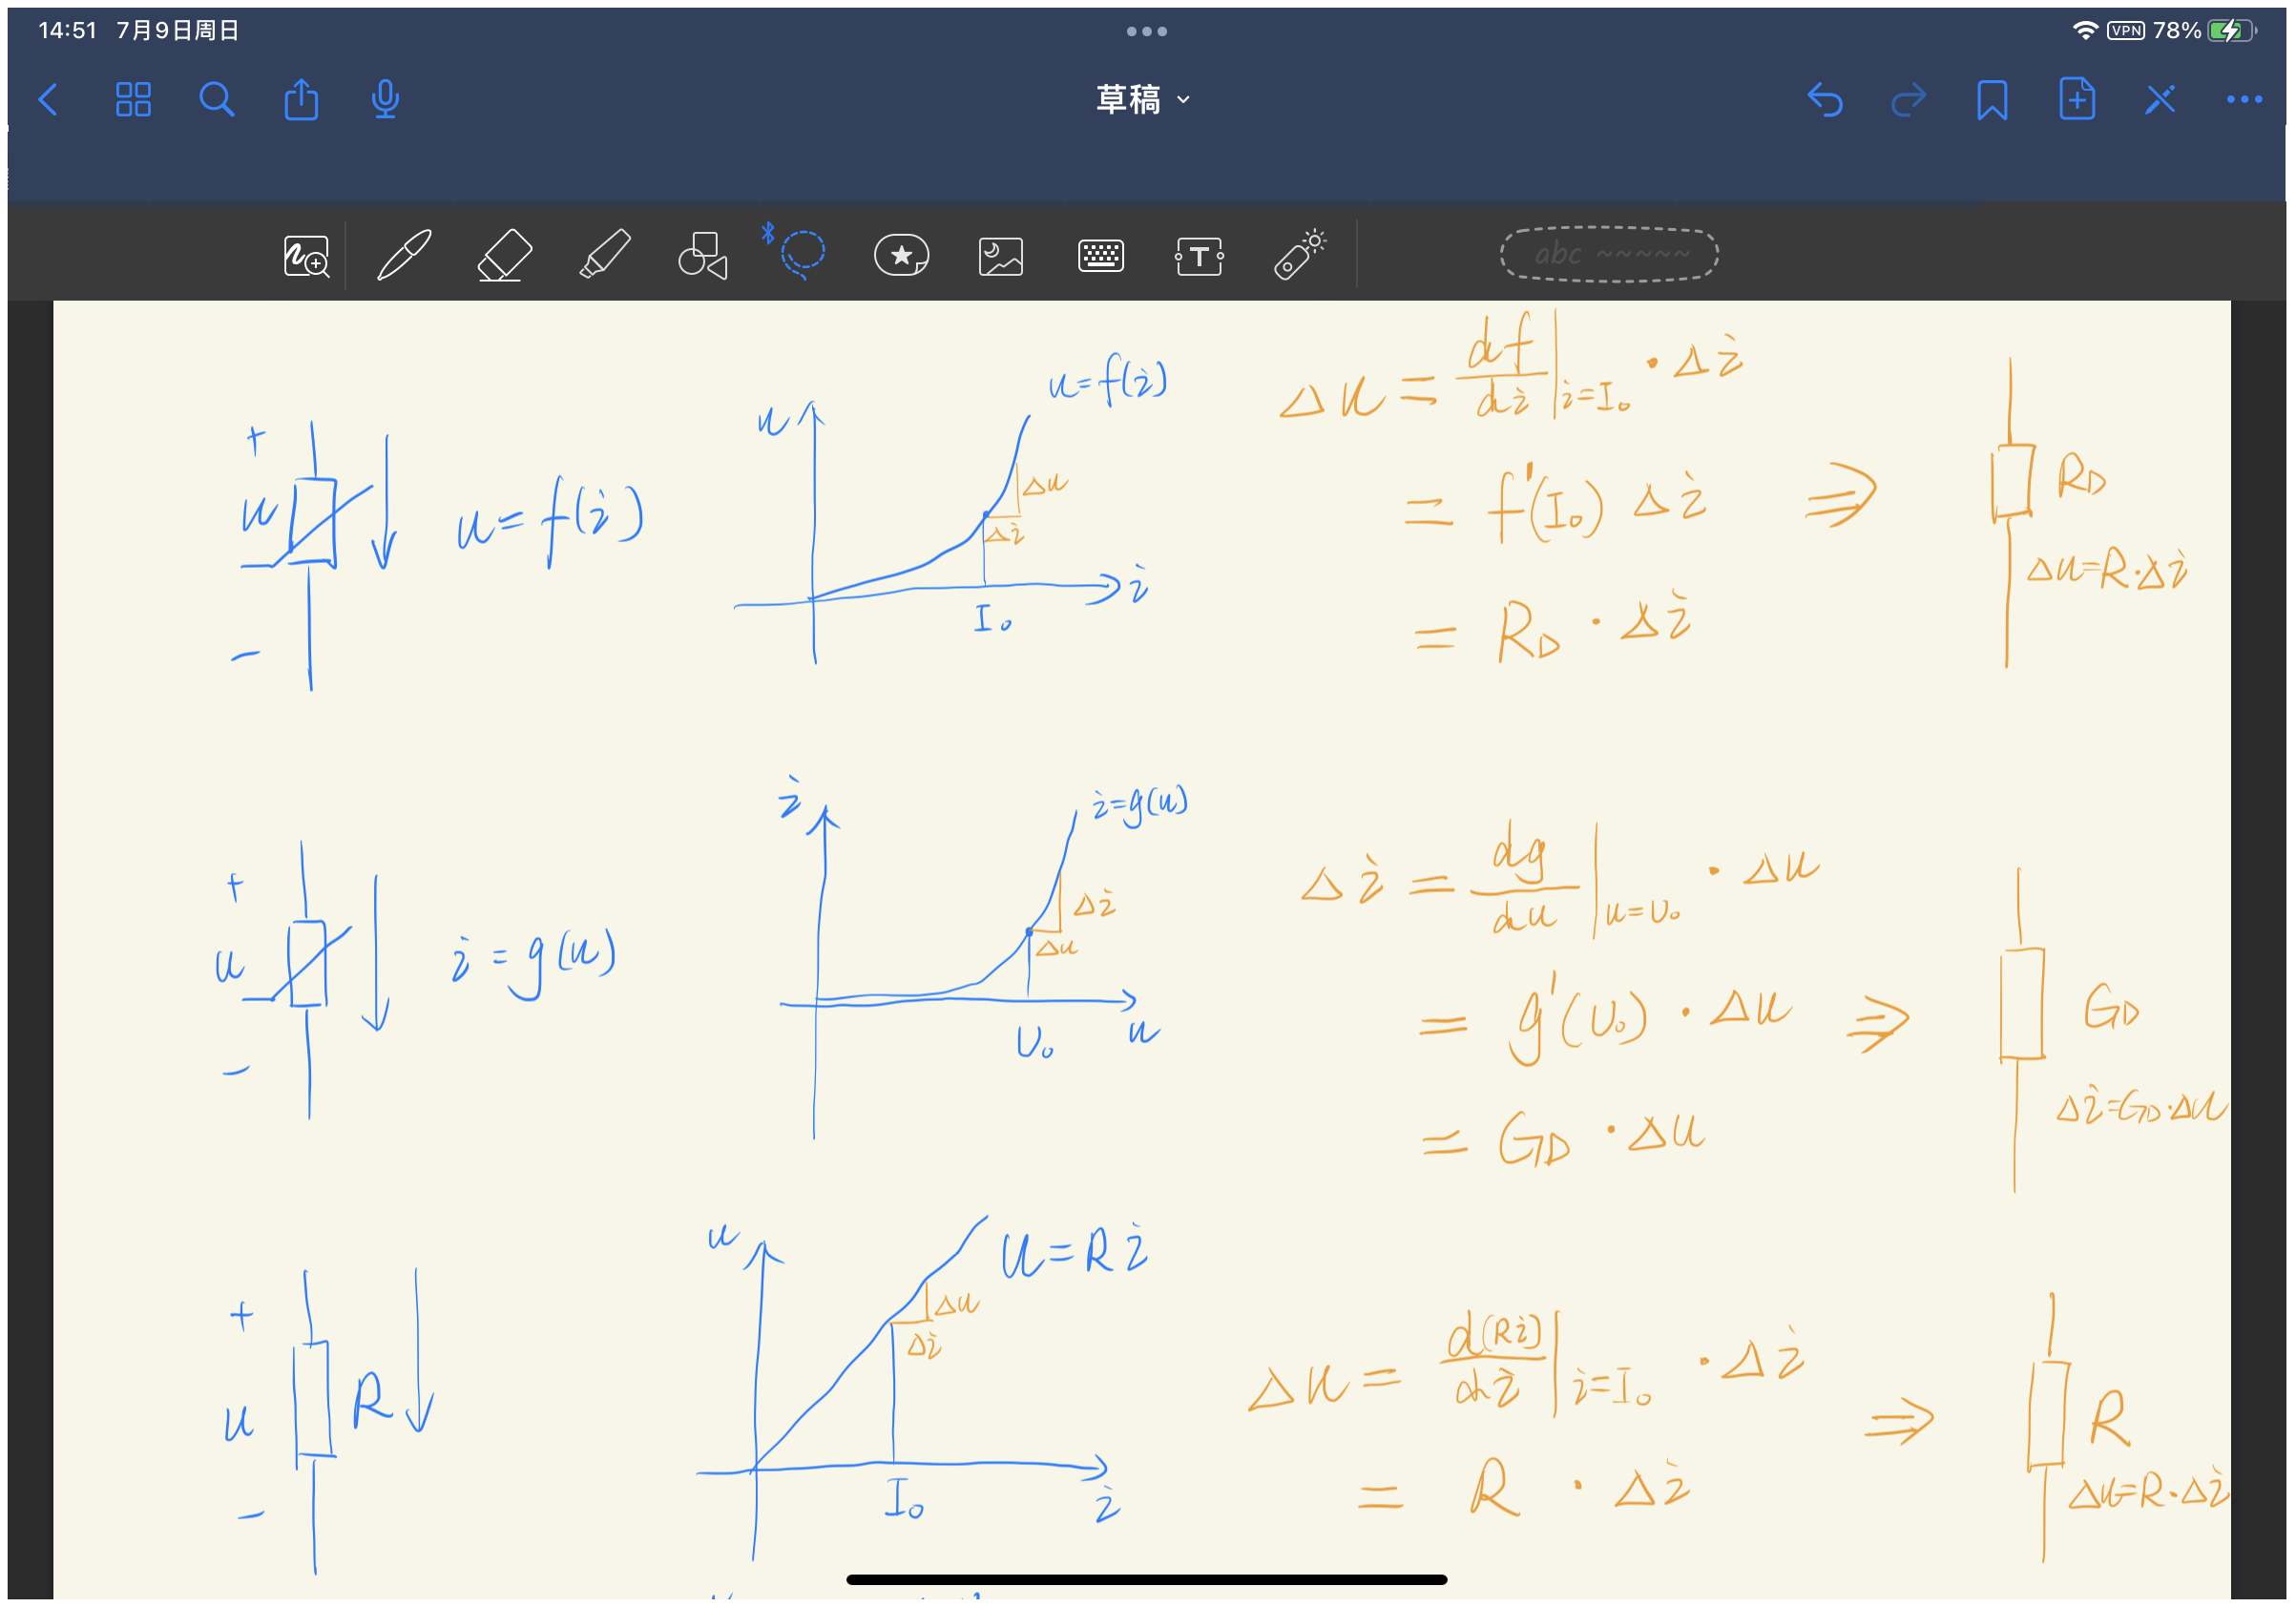 14:51 7月9日周日
VPN 78%
草稿
abc
+
u
−
u=f(i)
u
u=f(i)
Δu
Δi
I₀
i
Δu = df/di |i=I₀ · Δi
= f'(I₀) Δi ⇒
= R_D · Δi
R_D
Δu=R·Δi
+
u
−
i=g(u)
i
i=g(u)
Δi
Δu
U₀
u
Δi = dg/du |u=U₀ · Δu
= g'(U₀) · Δu ⇒
= G_D · Δu
G_D
Δi=G_D·Δu
+
u
R
−
u
u=Ri
Δu
Δi
I₀
i
Δu = d(Ri)/di |i=I₀ · Δi
⇒
= R · Δi
R
Δu=R·Δi